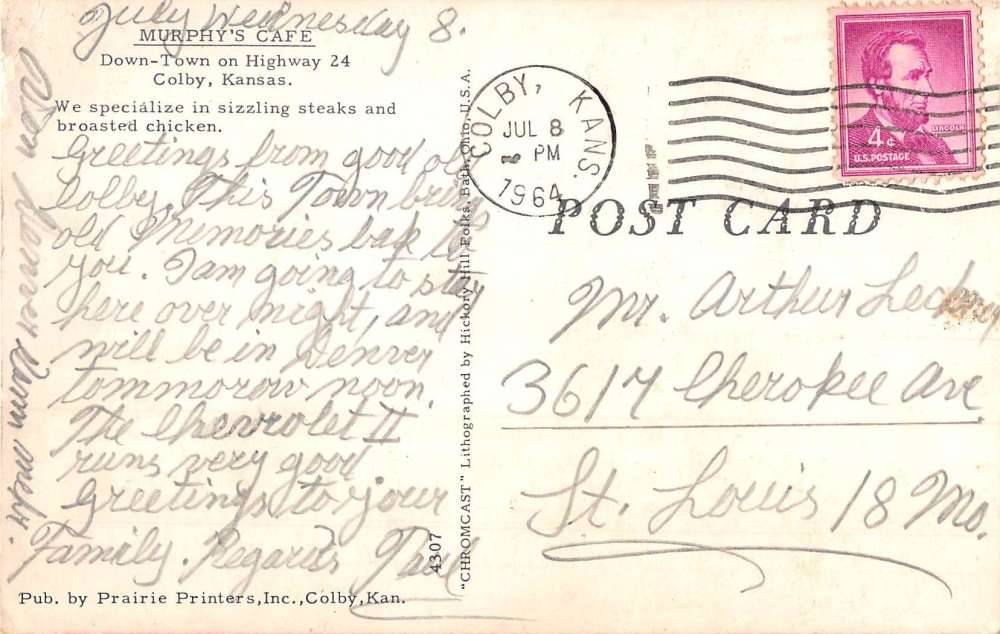 July Wednesday 8.
MURPHY'S CAFE
Down-Town on Highway 24
Colby, Kansas.
We specialize in sizzling steaks and
broasted chicken.
Greetings from good old
Colby. This Town brings
old Memories bak to
you. I am going to stay
here over night, and
will be in Denver
tommorow noon.
The Chevrolet II
runs very good.
Greetings to your
Family. Regards Paul
Pub. by Prairie Printers,Inc.,Colby,Kan.
4307
"CHROMCAST" Lithographed by Hickory Hill Folks, Bath, Ohio, U.S.A.
COLBY, KANS.
JUL 8
PM
1964
LINCOLN
4¢
U.S.POSTAGE
POST CARD
Mr. Arthur
3617 Cherokee Ave
St. Louis 18 Mo.